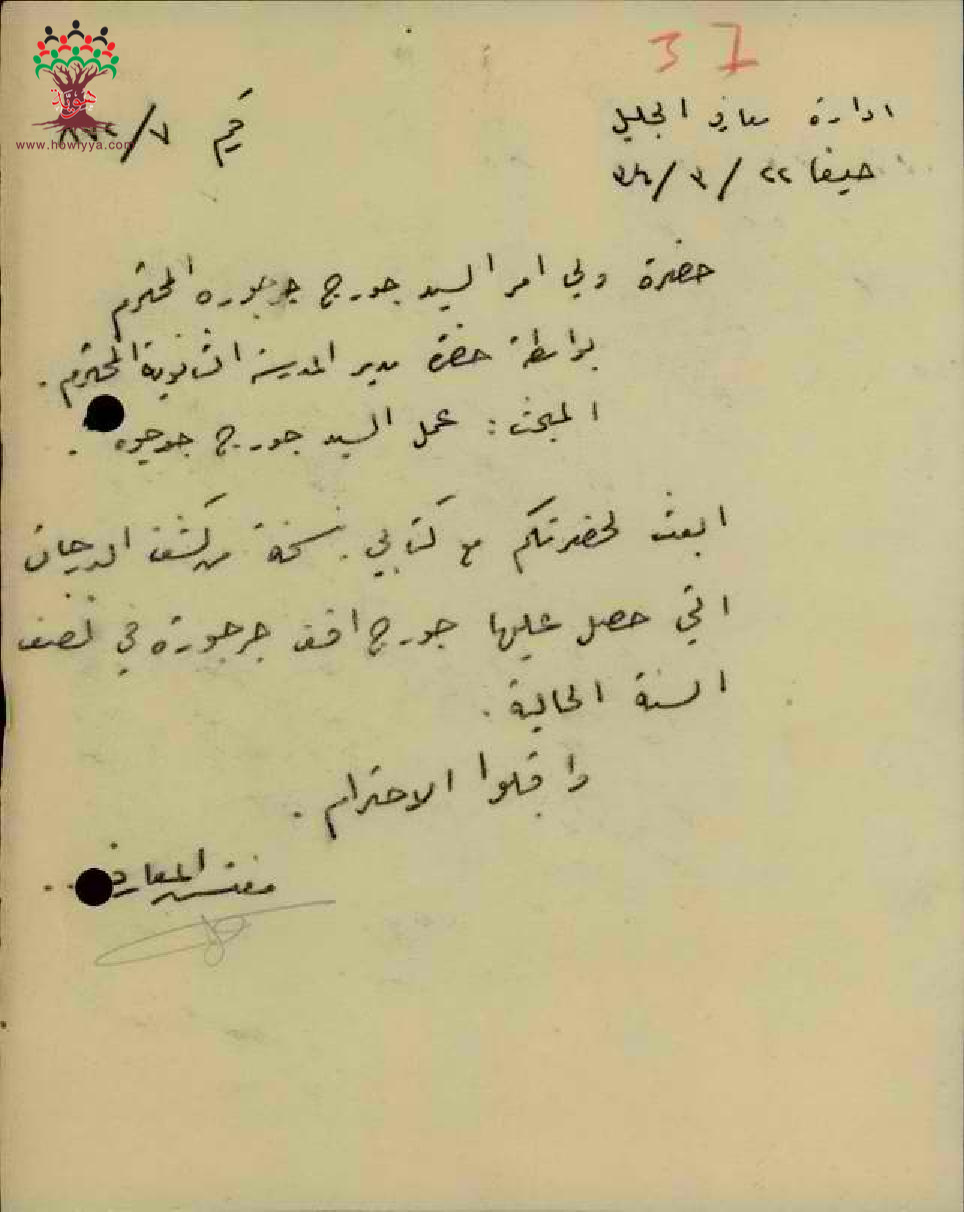 37
ادارة معارف الجليل
حيفا ٢٢ / ٣ /
٧/
www.howiyya.com
هوية
حضرة ولي امر السيد جورج جرجوره المحترم
بواسطة حضرة مدير المدرسة الثانوية المحترم .
المبحث : عمل السيد جورج جرجوره .
ابعث لحضرتكم مع كتابي نسخة من كشف الدرجات
التي حصل عليها جورج افندي جرجورة في نصف
السنة الحالية .
واقبلوا الاحترام .
مفتش المعارف